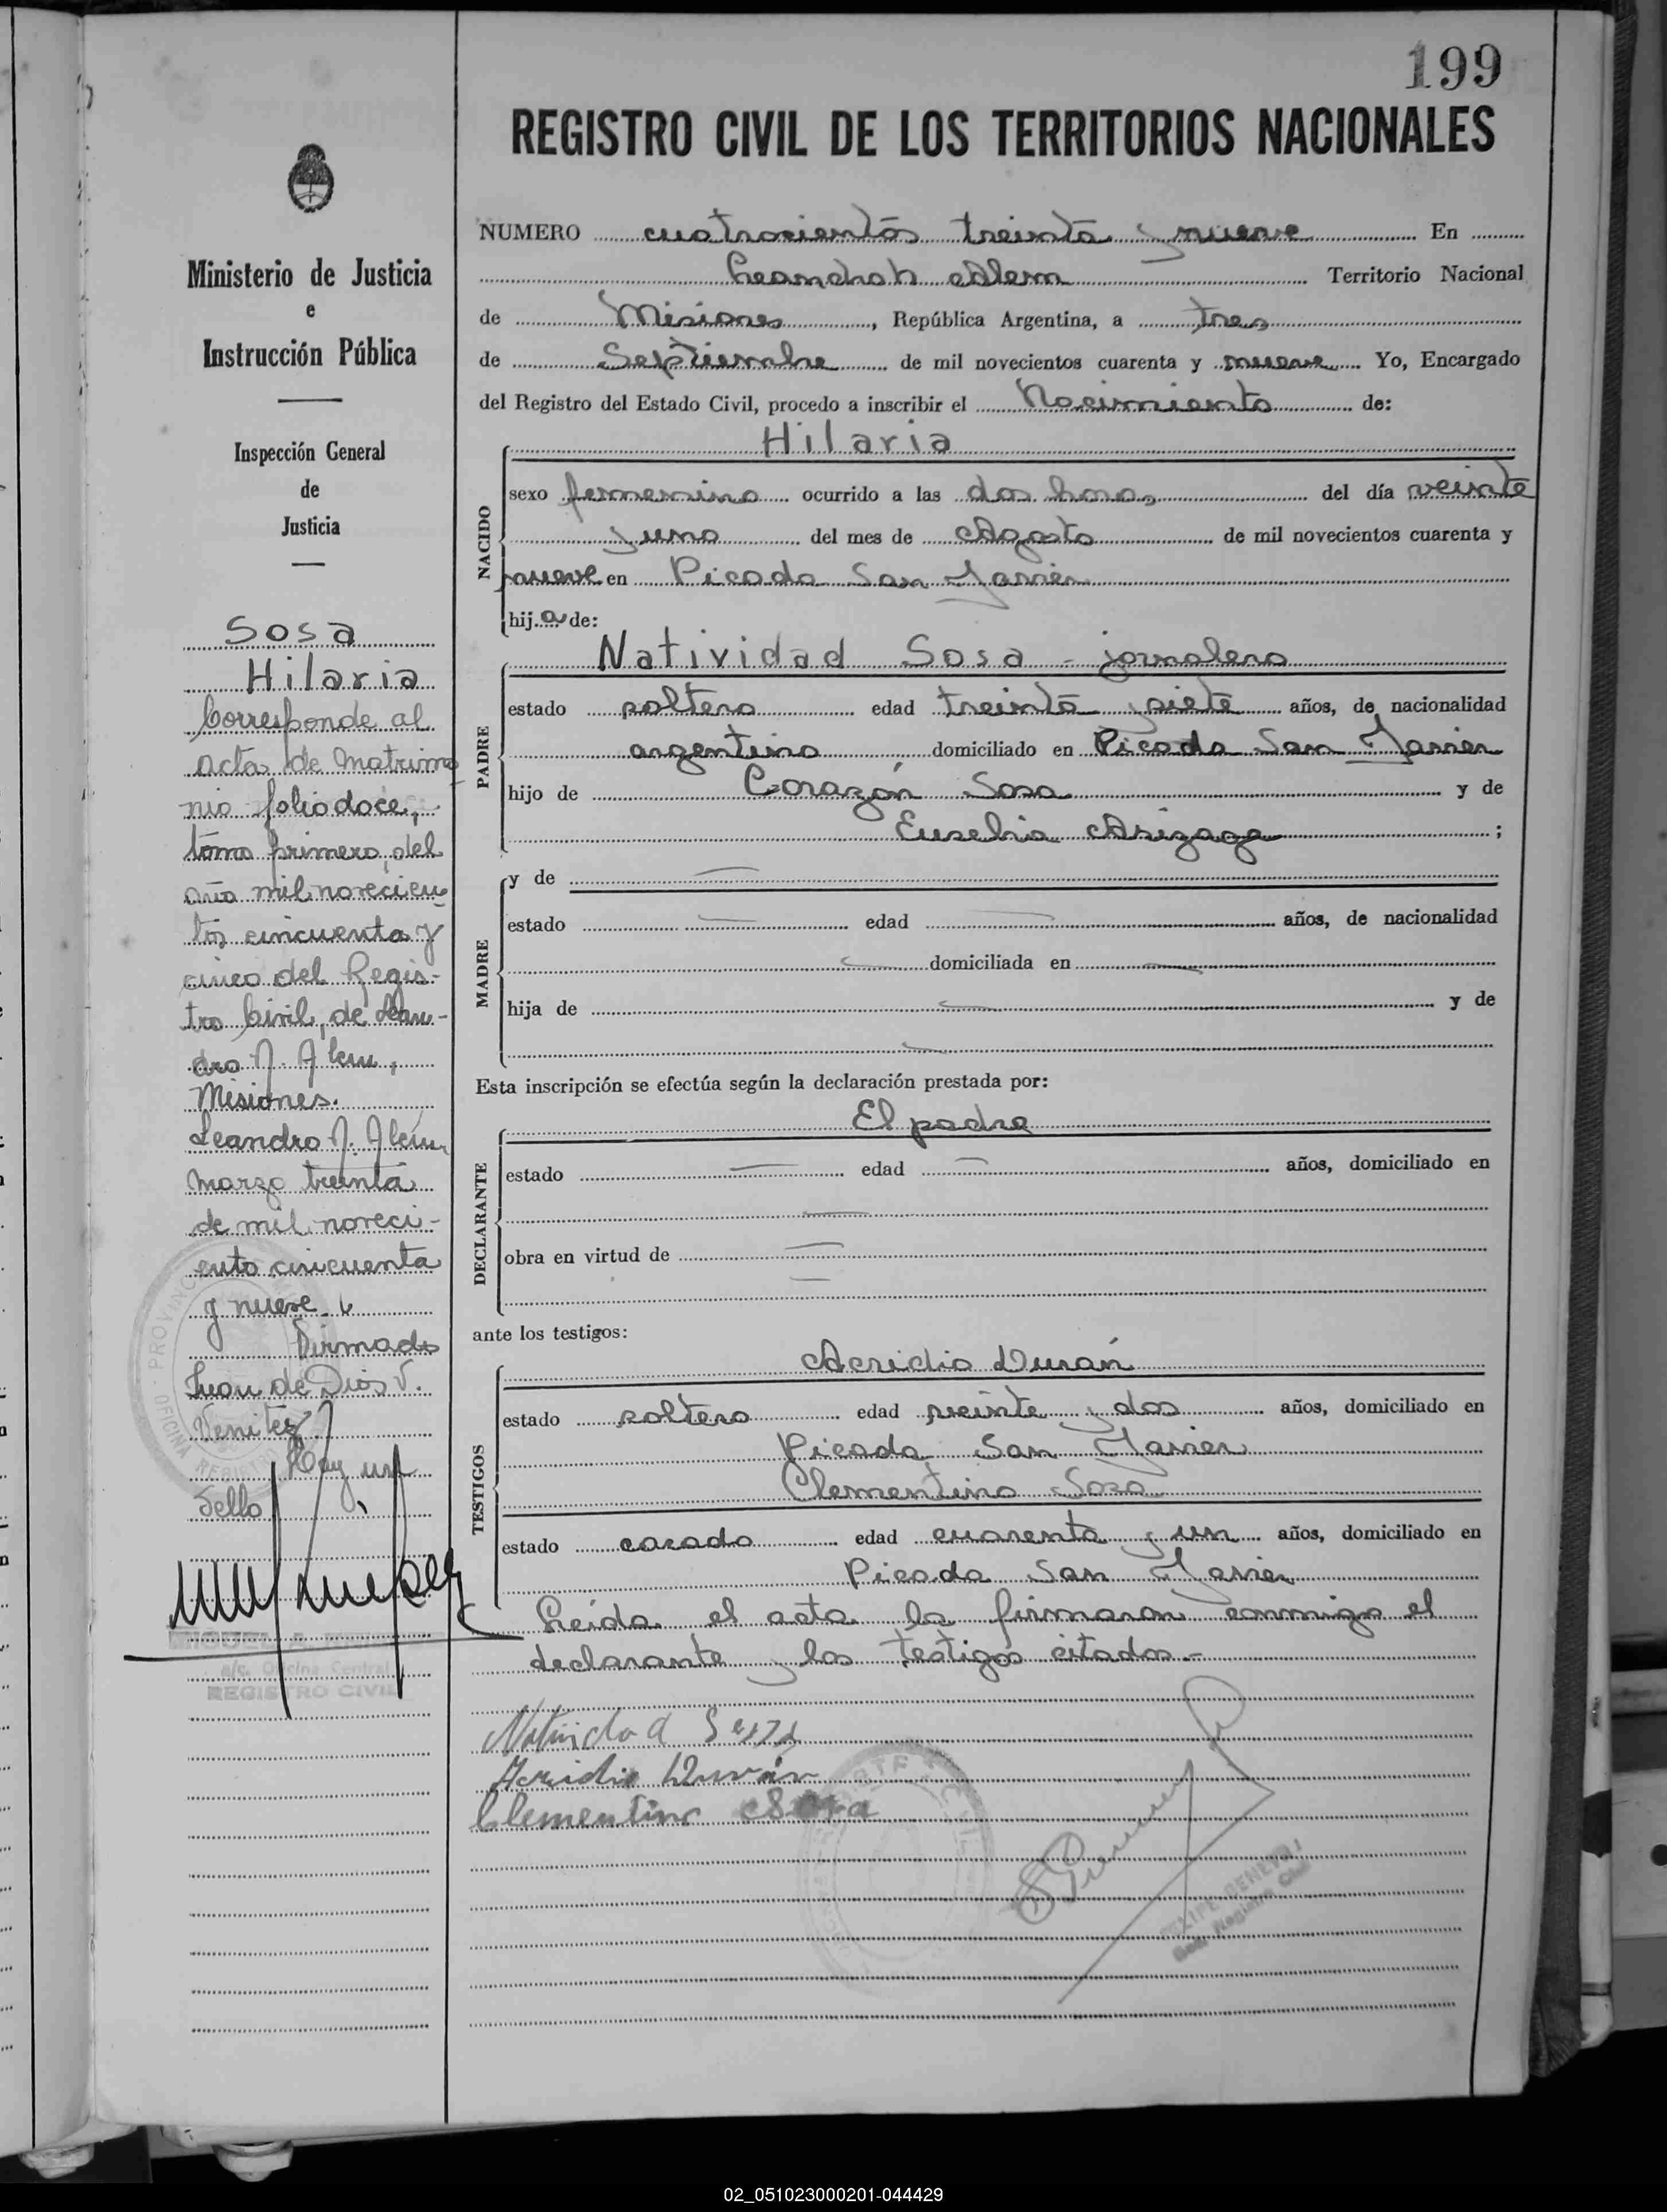 199
REGISTRO CIVIL DE LOS TERRITORIOS NACIONALES
Ministerio de Justicia
e
Instrucción Pública
Inspección General
de
Justicia
Sosa
Hilaria
Corresponde al
acta de Matrimo
nio folio doce,
tomo primero, del
año mil novecien
tos cincuenta y
cinco del Regis-
tro Civil, de Lean-
dro N. Alem,
Misiones.
Leandro N. Alem,
marzo treinta
de mil noveci-
ento cincuenta
y nueve.
Firmado
Juan de Dios V.
Venitez
Hay un
Sello
a/c. Oficina Central
REGISTRO CIVIL
NUMERO cuatrocientos treinta y nueve En
Leandro N Alem Territorio Nacional
de Misiones, República Argentina, a tres
de Septiembre de mil novecientos cuarenta y nueve Yo, Encargado
del Registro del Estado Civil, procedo a inscribir el Nacimiento de:
NACIDO
Hilaria
sexo femenino ocurrido a las dos horas, del día veinte
y uno del mes de Agosto de mil novecientos cuarenta y
nueve en Picada San Javier
hij a de:
PADRE
Natividad Sosa - jornalero
estado soltero edad treinta y siete años, de nacionalidad
argentino, domiciliado en Picada San Javier
hijo de Corazón Sosa y de
Eusebia Arizaga;
MADRE
y de —
estado — edad — años, de nacionalidad
— domiciliada en —
hija de — y de
—
Esta inscripción se efectúa según la declaración prestada por:
DECLARANTE
El padre
estado — edad — años, domiciliado en
—
obra en virtud de —
—
ante los testigos:
TESTIGOS
Acridio Durán
estado soltero edad veinte y dos años, domiciliado en
Picada San Javier
Clementino Sosa
estado casado edad cuarenta y un años, domiciliado en
Picada San Javier
Leída el acta la firmaron conmigo el
declarante y los testigos citados.-
Natividad Sosa
Acridio Durán
Clementino Sosa
02_051023000201-044429